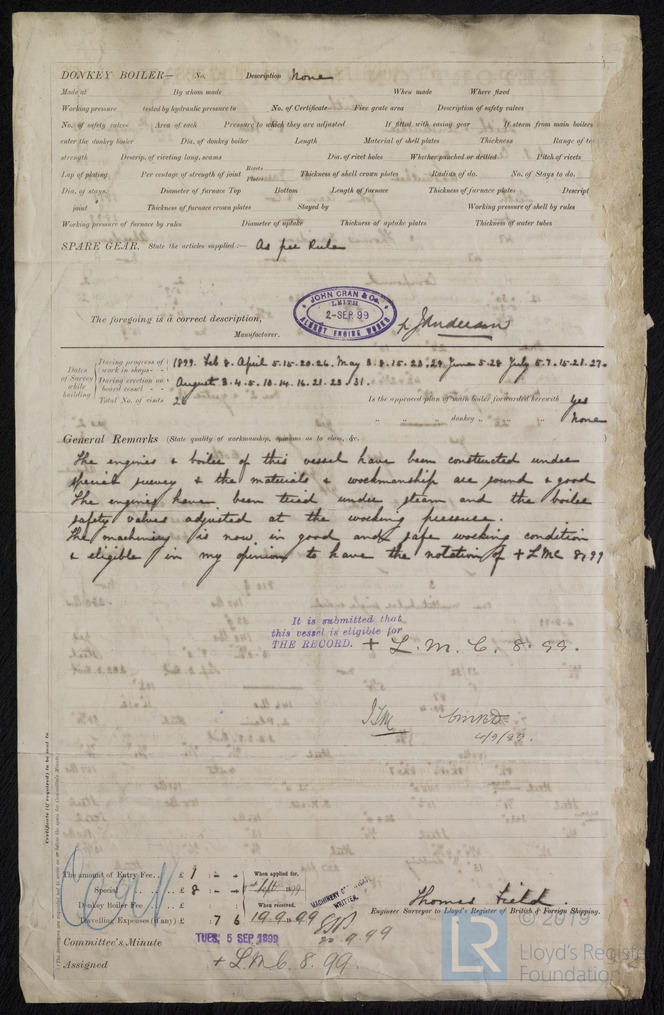 DONKEY BOILER— No. Description None
Made at By whom made When made Where fixed
Working pressure tested by hydraulic pressure to No. of Certificate Fire grate area Description of safety valves
No. of safety valves Area of each Pressure to which they are adjusted If fitted with easing gear If steam from main boilers
enter the donkey boiler Dia. of donkey boiler Length Material of shell plates Thickness Range of
strength Descrip. of riveting long. seams Dia. of rivet holes Whether punched or drilled Pitch of rivets
Lap of plating Per centage of strength of joint Rivets Plates Thickness of shell crown plates Radius of do. No. of Stays to do.
Dia. of stays. Diameter of furnace Top Bottom Length of furnace Thickness of furnace plates Descript
joint Thickness of furnace crown plates Stayed by Working pressure of shell by rules
Working pressure of furnace by rules Diameter of uptake Thickness of uptake plates Thickness of water tubes
SPARE GEAR. State the articles supplied:— As per Rule
JOHN CRAN & Co.
LEITH
2-SEP.99
ALBERT ENGINE WORKS
The foregoing is a correct description,
Manufacturer. p J Anderson
Dates of Survey while building
During progress of work in shops - - 1899. Feb 8. April 5.15.20.26. May 3.8.15.23.29. June 5.28 July 5.7.15.21.27.
During erection on board vessel - - August 3.4.5.10.14.16.21.23.31.
Total No. of visits 26 Is the approved plan of main boiler forwarded herewith Yes
" " donkey " " " None
General Remarks (State quality of workmanship, opinions as to class, &c.
The engines & boiler of this vessel have been constructed under
special survey & the materials & workmanship are sound & good
The engines have been tried under steam and the boiler
safety valves adjusted at the working pressure.
The machinery is now in good and safe working condition
& eligible in my opinion to have the notation of + LMC 8,99
It is submitted that
this vessel is eligible for
THE RECORD. + L. M. C. 8. 99.
4/9/99.
Certificate (if required) to be sent to
The amount of Entry Fee. . £ 1 : - : - When applied for,
Special . . . . £ 8 : - : -
Donkey Boiler Fee . . . £ : : When received,
Travelling Expenses (if any) £ : 7 6 19.9.99
MACHINERY CERTIFICATE
WRITTEN.
20.9.99
Thomas Field.
Engineer Surveyor to Lloyd's Register of British & Foreign Shipping.
Committee's Minute TUES. 5 SEP 1899
Assigned + L.M.C. 8.99.
© 2019
LR
Lloyd's Register
Foundation